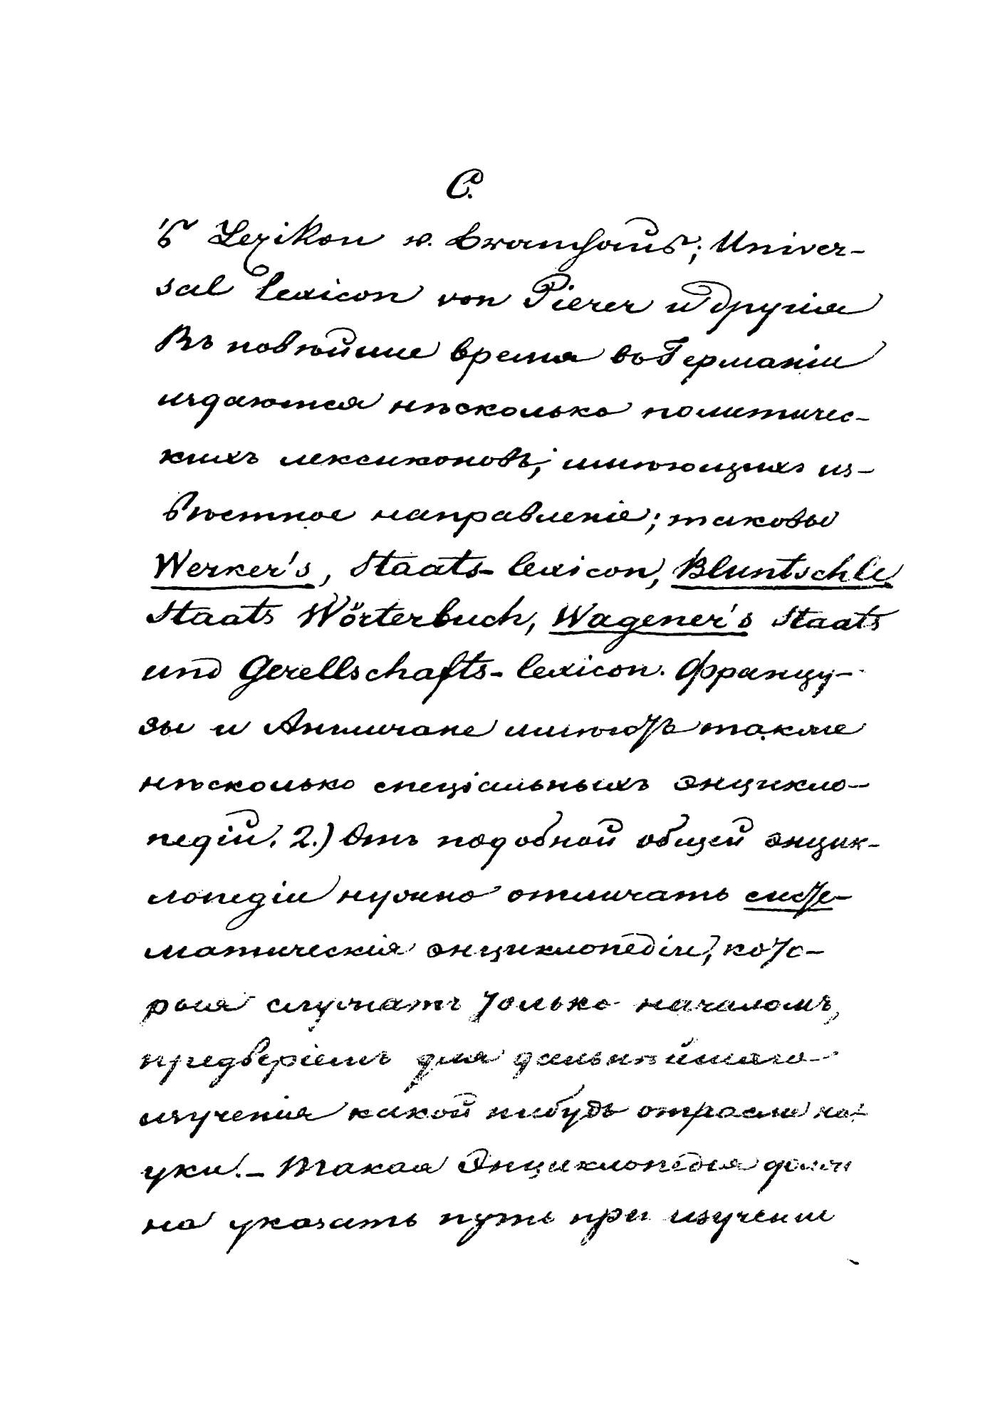 С.
'ъ Lexikon v. Bramhaus; Univer-
sal Lexicon von Pierer и другія
Въ новѣйшие время во Германіи
издаются нѣсколько политичес-
кихъ лексиконовъ, имѣющихъ из-
вѣстное направленіе; таковы
Werker's, Staats-lexicon, Bluntschle
Staats Wörterbuch, Wagener's Staats
und Gesellschafts-lexicon. Францу-
зы и Англичане имѣютъ также
нѣсколько спеціальныхъ энцикло-
педій. 2.) Отъ подобной общей энцик-
лопедіи нужно отличать систе-
матическія энциклопедіи, кото-
рыя служатъ только началомъ,
предверіемъ для дальнѣйшаго
изученія какой нибудь отрасли на-
уки. - Такая Энциклопедія долж
на указать путь при изученіи